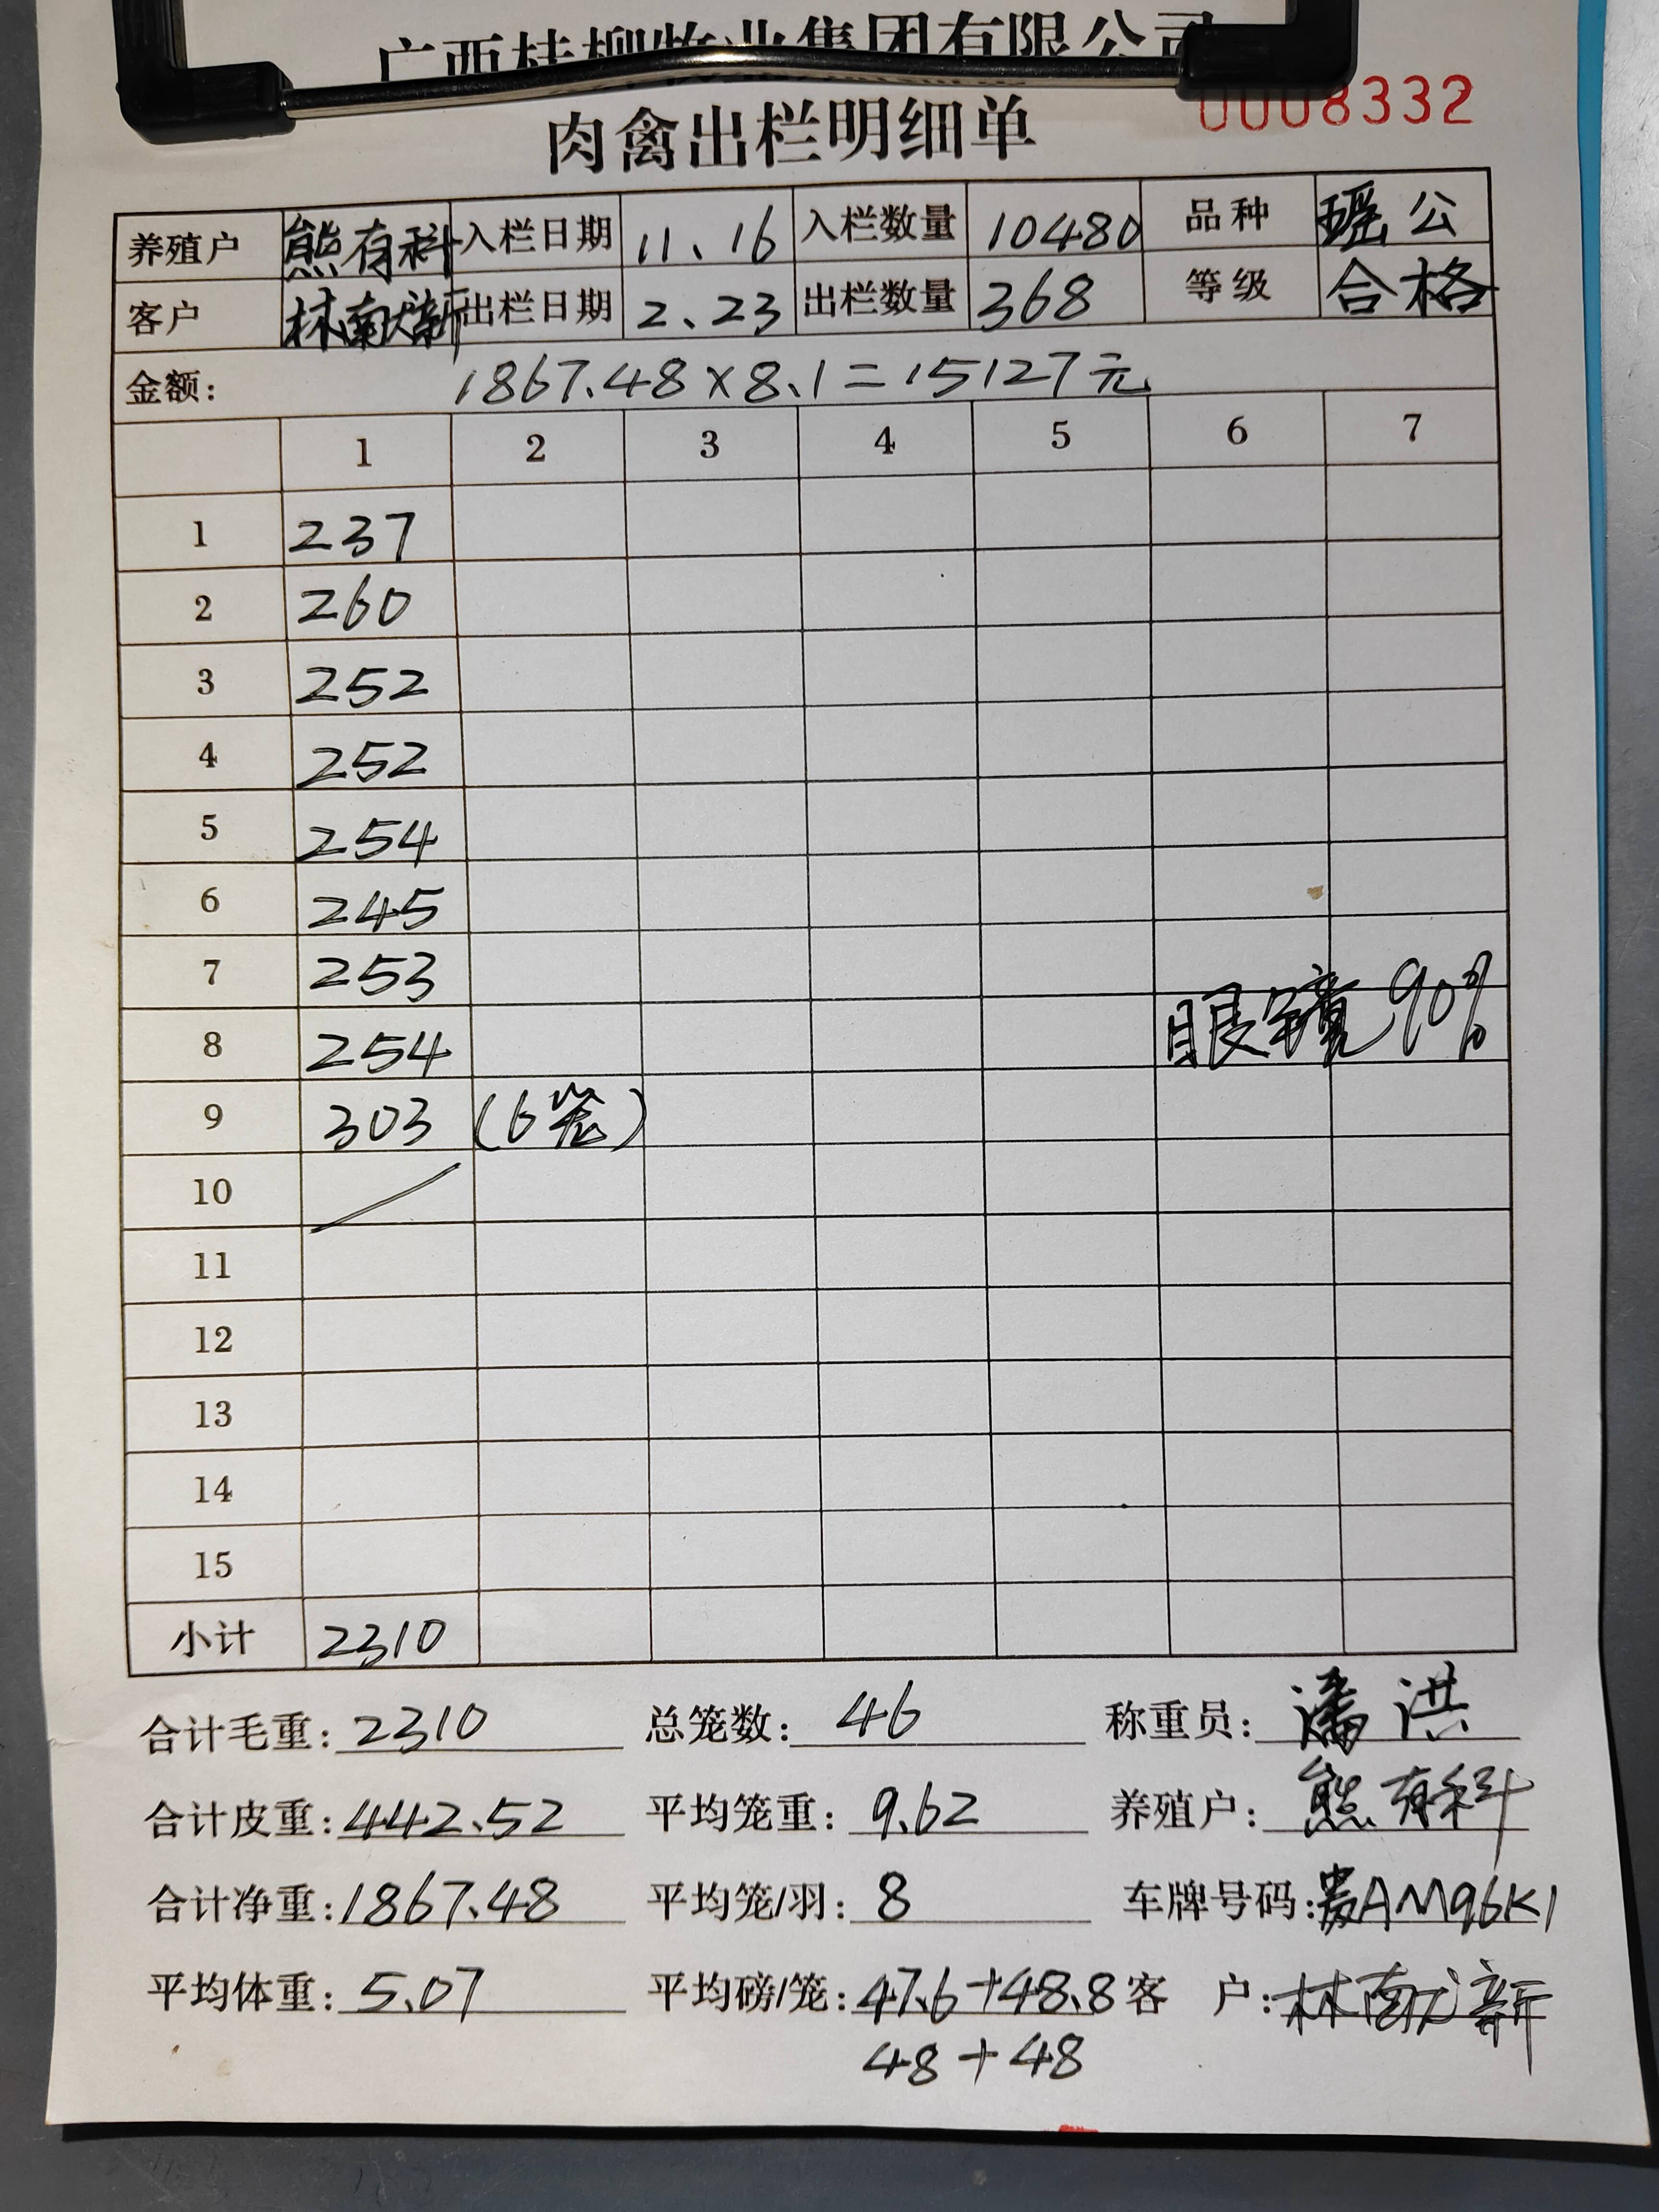 广西桂柳牧业集团有限公司
0008332
肉禽出栏明细单
养殖户 熊有科 入栏日期 11.16 入栏数量 10480 品种 瑶公
客户 林南新 出栏日期 2.23 出栏数量 368 等级 合格
金额: 1867.48×8.1=15127元
1 2 3 4 5 6 7
1 237
2 260
3 252
4 252
5 254
6 245
7 253
眼镜90%
8 254
9 303 (6笼)
10
11
12
13
14
15
小计 2310
合计毛重: 2310 总笼数: 46 称重员: 潘洪
合计皮重: 442.52 平均笼重: 9.62 养殖户: 熊有科
合计净重: 1867.48 平均笼/羽: 8 车牌号码: 贵AM96K1
平均体重: 5.07 平均磅/笼: 47.6+48.8 客户: 林南新
48+48